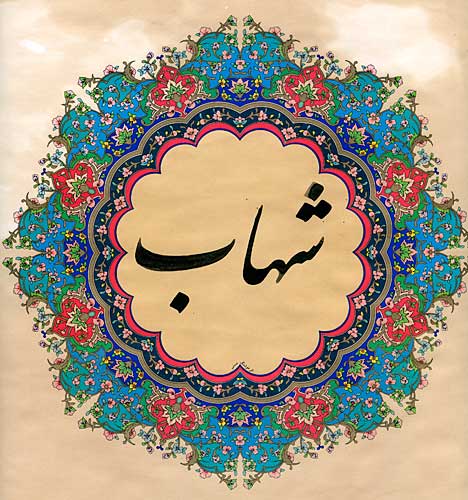 شهاب